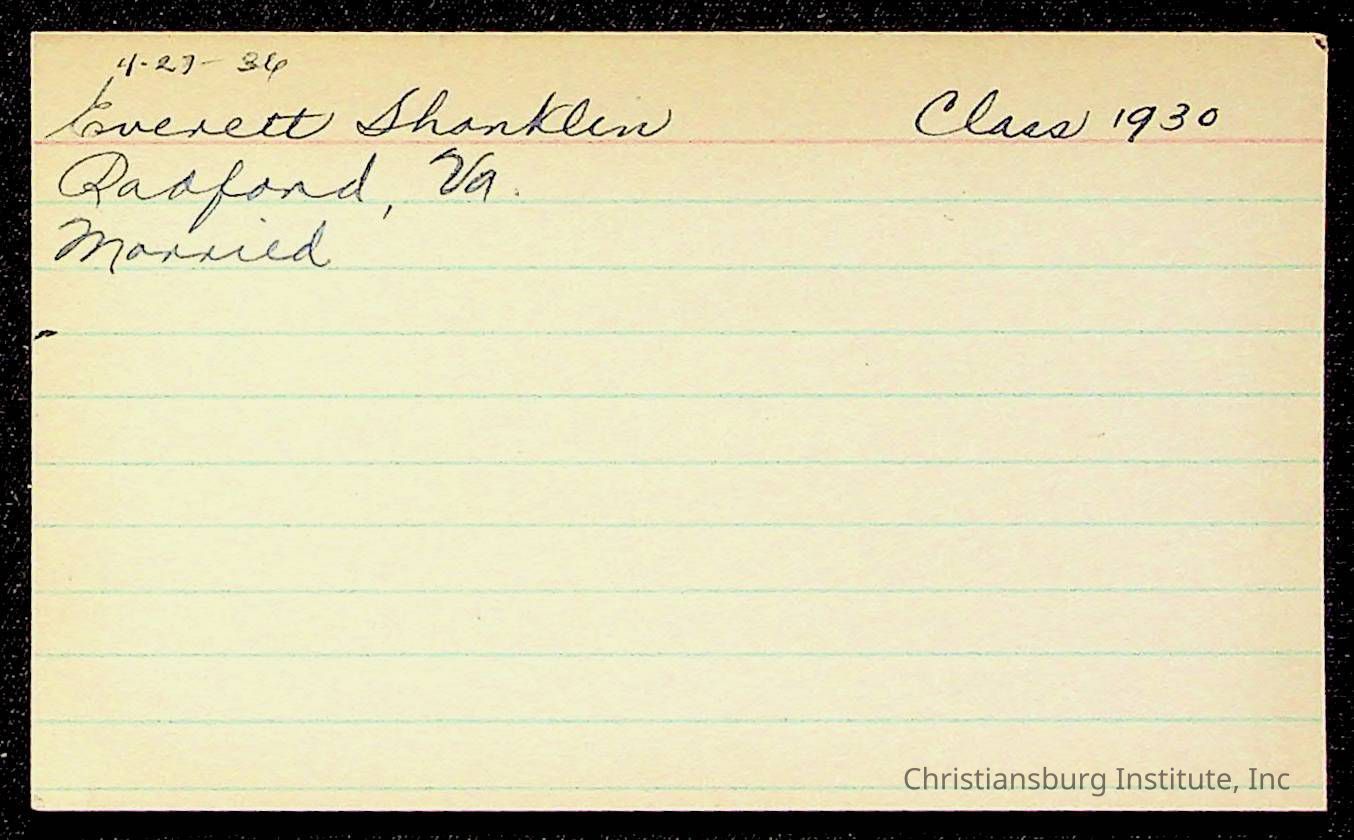 4-27-36
Everett Shanklin Class 1930
Radford, Va.
Married
Christiansburg Institute, Inc